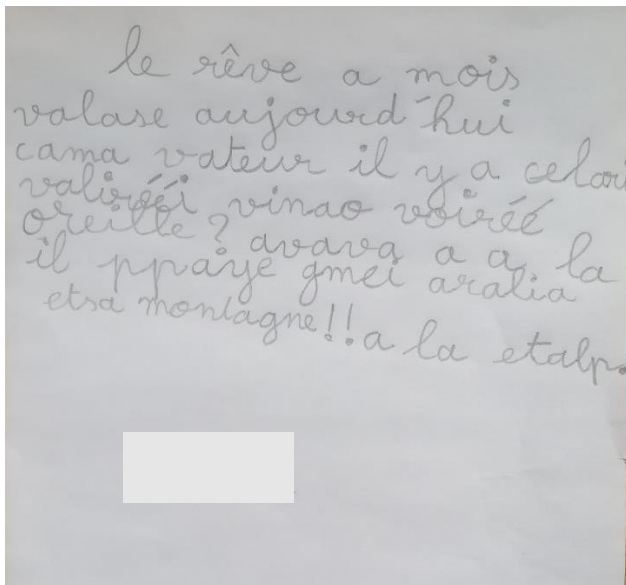 le rêve a mois
valase aujourd'hui
cama vateur il y a celou
valirééi vinao voiréé
oreille? avava a a la
il ppaye gmei aralia
etsa montagne!! a la etalp.